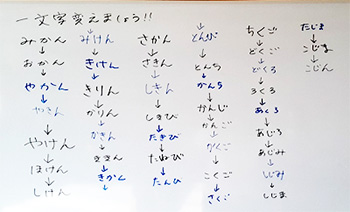 一文字変えましょう!!
みかん
↓
おかん
↓
やかん
↓
やけん
↓
ほけん
↓
しけん
みけん
↓
きけん
↓
きりん
↓
かりん
↓
かきん
↓
ききん
↓
きかん
↓
さかん
↓
さきん
↓
しきん
↓
しきび
↓
たきび
↓
たねび
↓
たんび
↓
とんび
↓
とんち
↓
かんち
↓
かんじ
↓
かんご
↓
↓
こくご
↓
さくご
↓
ちくご
↓
どくご
↓
どくろ
↓
ろくろ
↓
あくろ
↓
あじろ
↓
あじみ
↓
しじみ
↓
しじま
↓
たじま
↓
こじま
↓
こじん